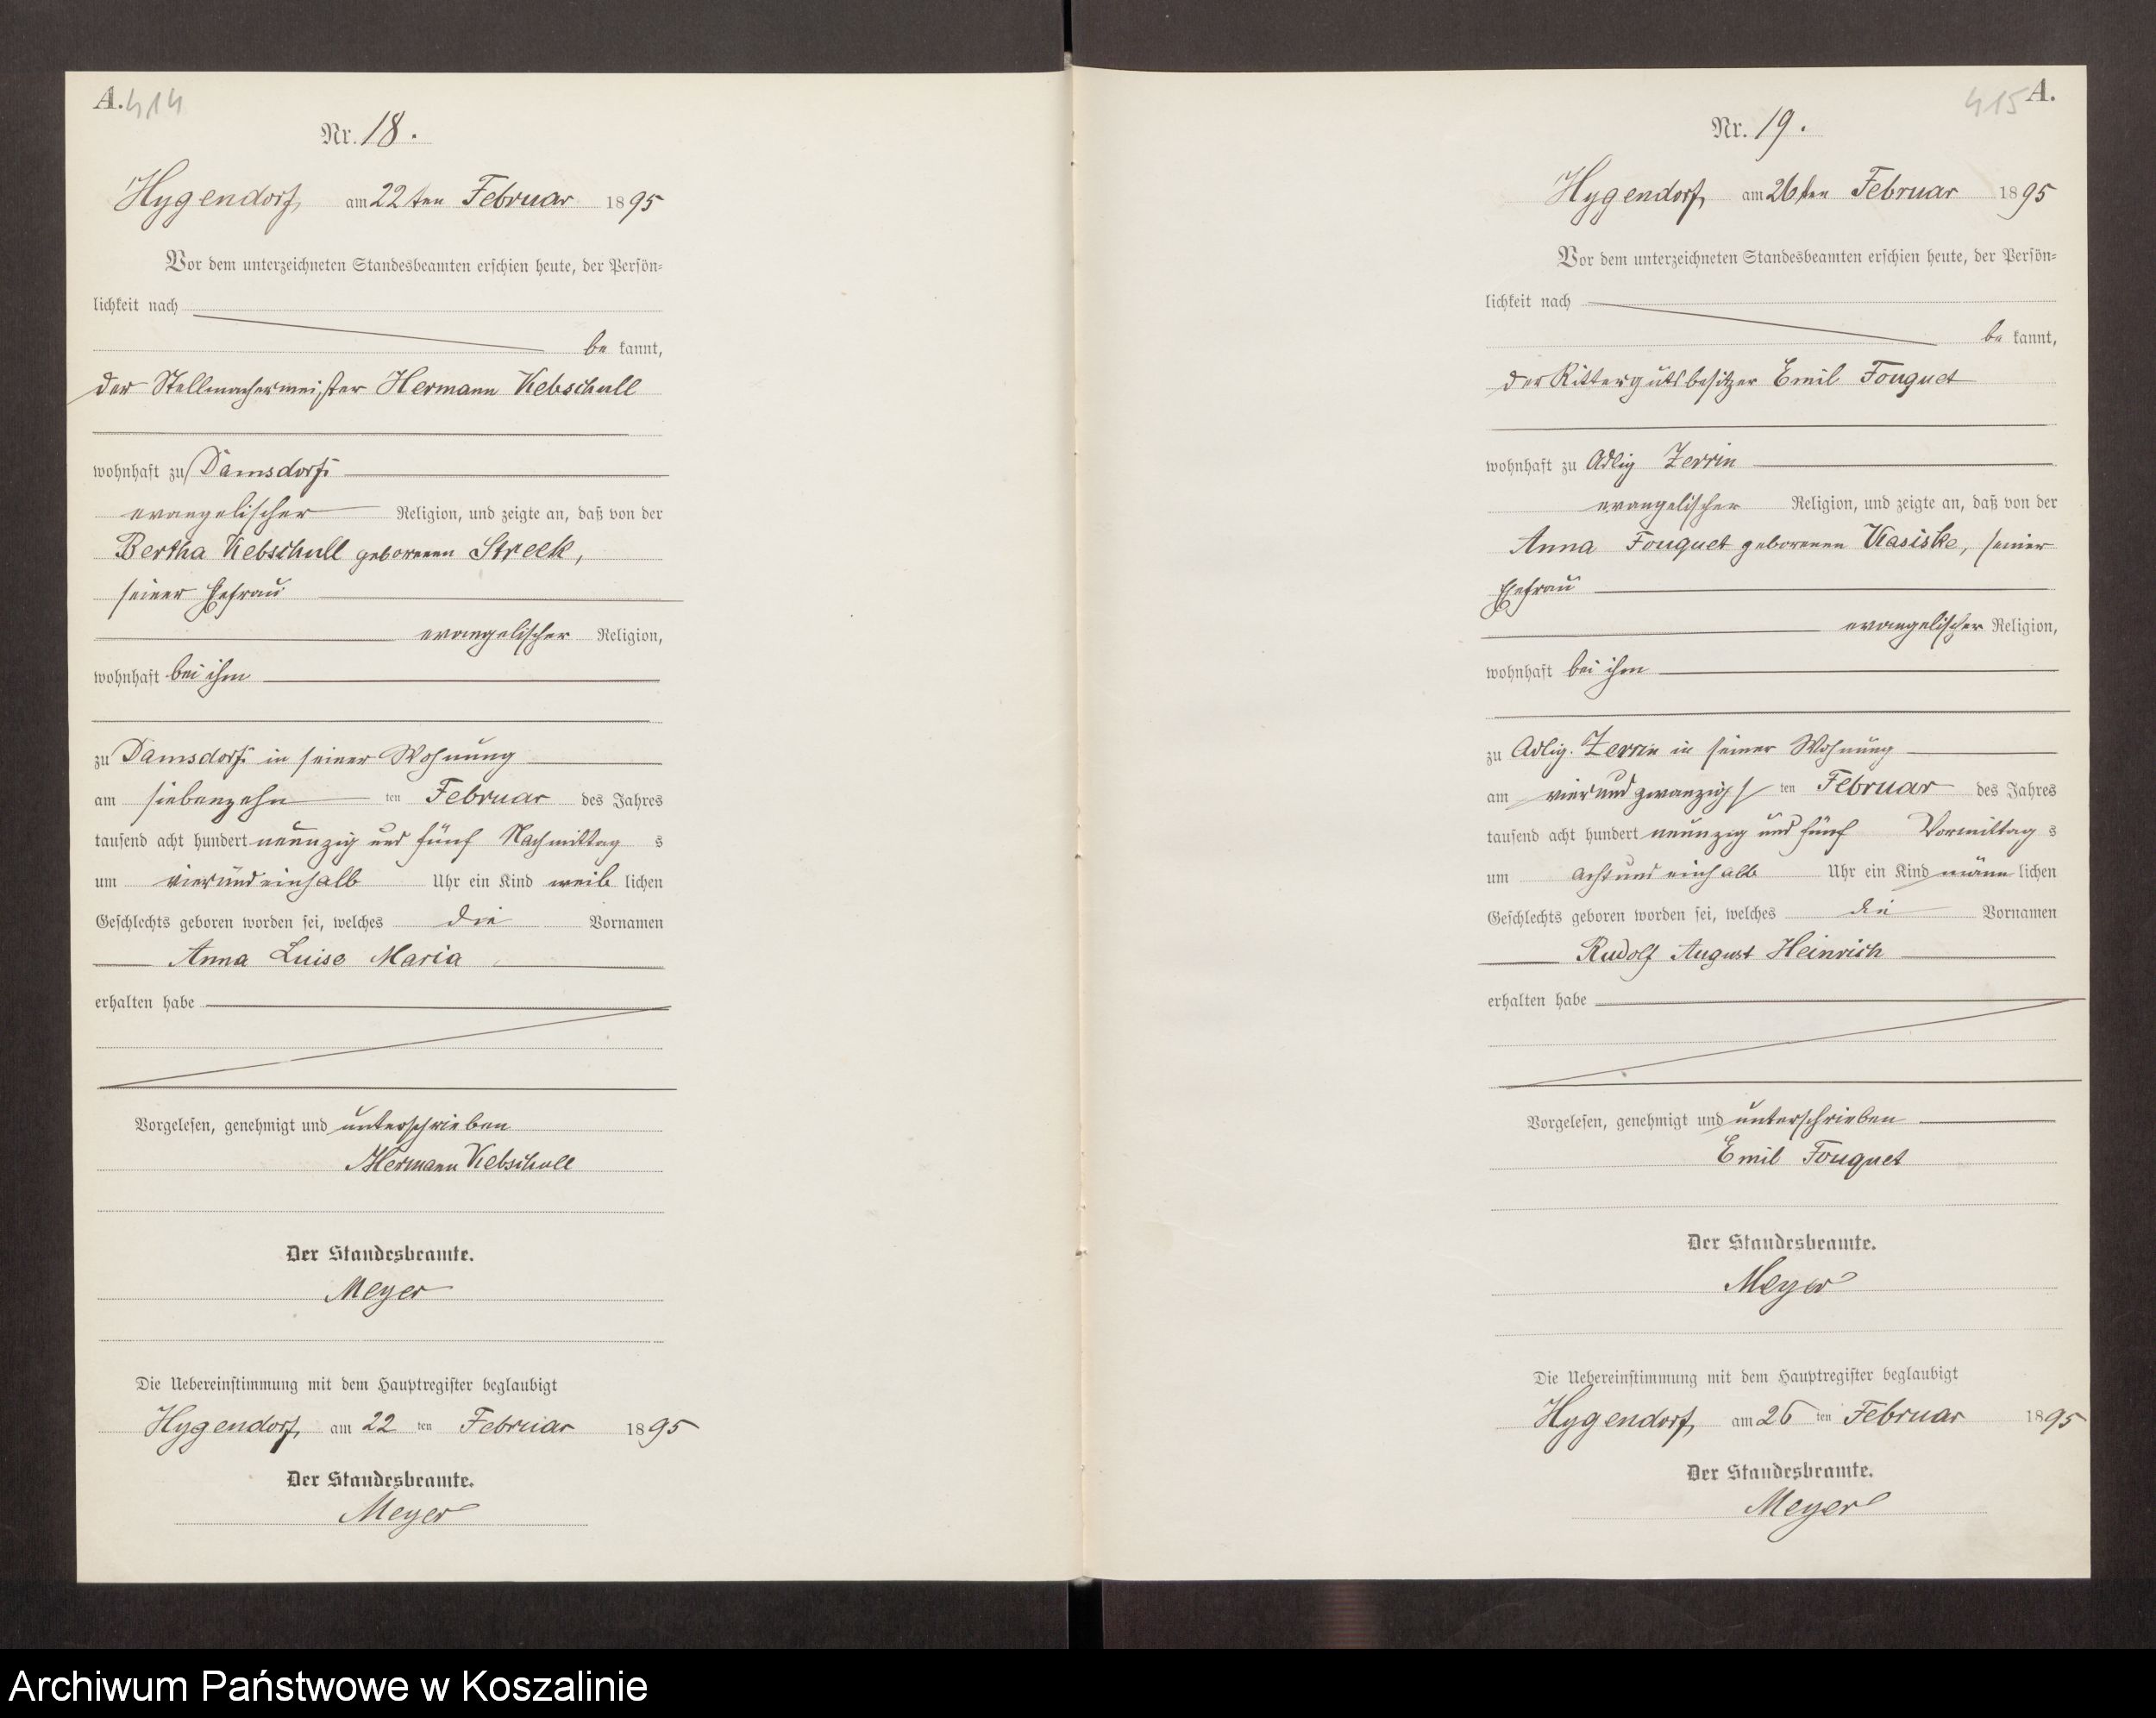 A. 414
Nr. 18.
Hygendorf, am 22ten Februar 1895
Vor dem unterzeichneten Standesbeamten erschien heute, der Persön-
lichkeit nach
be kannt,
der Stellmachermeister Hermann Kebschull
wohnhaft zu Damsdorf
evangelischer Religion, und zeigte an, daß von der
Bertha Kebschull geborenen Streek,
seiner Ehefrau
evangelischer Religion,
wohnhaft bei ihm
zu Damsdorf in seiner Wohnung
am siebenzehn ten Februar des Jahres
tausend acht hundert neunzig und fünf Nachmittag s
um vierundeinhalb Uhr ein Kind weib lichen
Geschlechts geboren worden sei, welches die Vornamen
Anna Luise Maria
erhalten habe
Vorgelesen, genehmigt und unterschrieben
Hermann Kebschull
Der Standesbeamte.
Meyer
Die Uebereinstimmung mit dem Hauptregister beglaubigt
Hygendorf, am 22 ten Februar 1895
Der Standesbeamte.
Meyer
415 A.
Nr. 19.
Hygendorf, am 26ten Februar 1895
Vor dem unterzeichneten Standesbeamten erschien heute, der Persön-
lichkeit nach
be kannt,
der Rittergutsbesitzer Emil Fouquet
wohnhaft zu Adlig Zerrin
evangelischer Religion, und zeigte an, daß von der
Anna Fouquet geborenen Kasiske, seiner
Ehefrau
evangelischer Religion,
wohnhaft bei ihm
zu Adlig. Zerrin in seiner Wohnung
am vierundzwanzigs ten Februar des Jahres
tausend acht hundert neunzig und fünf Vormittag s
um achtundeinhalb Uhr ein Kind männ lichen
Geschlechts geboren worden sei, welches die Vornamen
Rudolf August Heinrich
erhalten habe
Vorgelesen, genehmigt und unterschrieben
Emil Fouquet
Der Standesbeamte.
Meyer
Die Uebereinstimmung mit dem Hauptregister beglaubigt
Hygendorf, am 26 ten Februar 1895
Der Standesbeamte.
Meyer
Archiwum Państwowe w Koszalinie